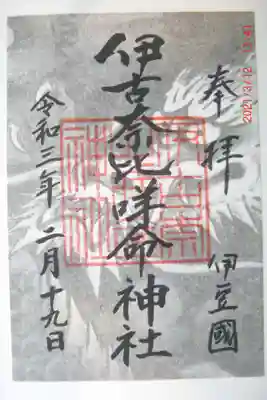 2021/3/12 13:41
奉拝
伊豆國
伊古奈比咩命神社
令和三年二月十九日